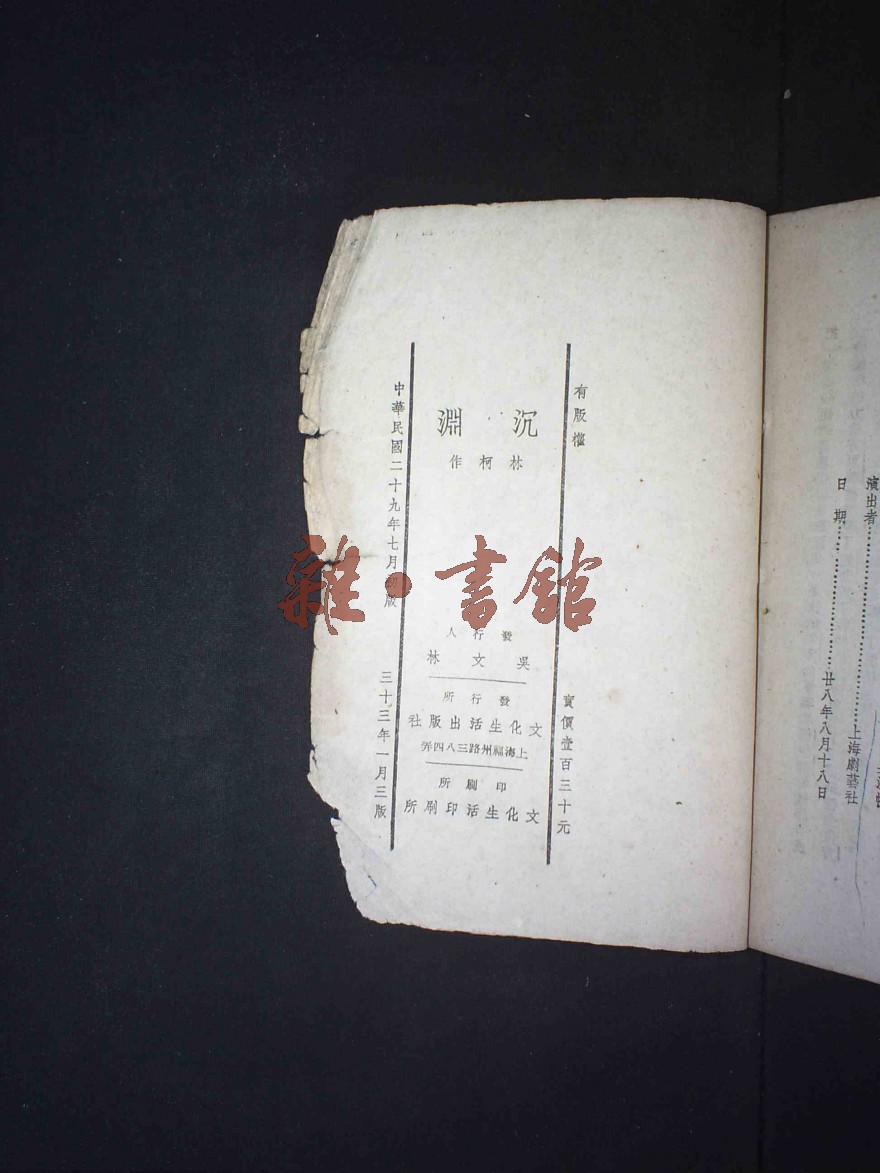 演出者……………………上海劇藝社
日期……………………廿八年八月十八日
有版權
實價壹百三十元
沉淵
林柯作
發行人
吳文林
發行所
文化生活出版社
上海福州路三八四弄
印刷所
文化生活印刷所
中華民國二十九年七月初版
三十三年一月三版
雜·書館